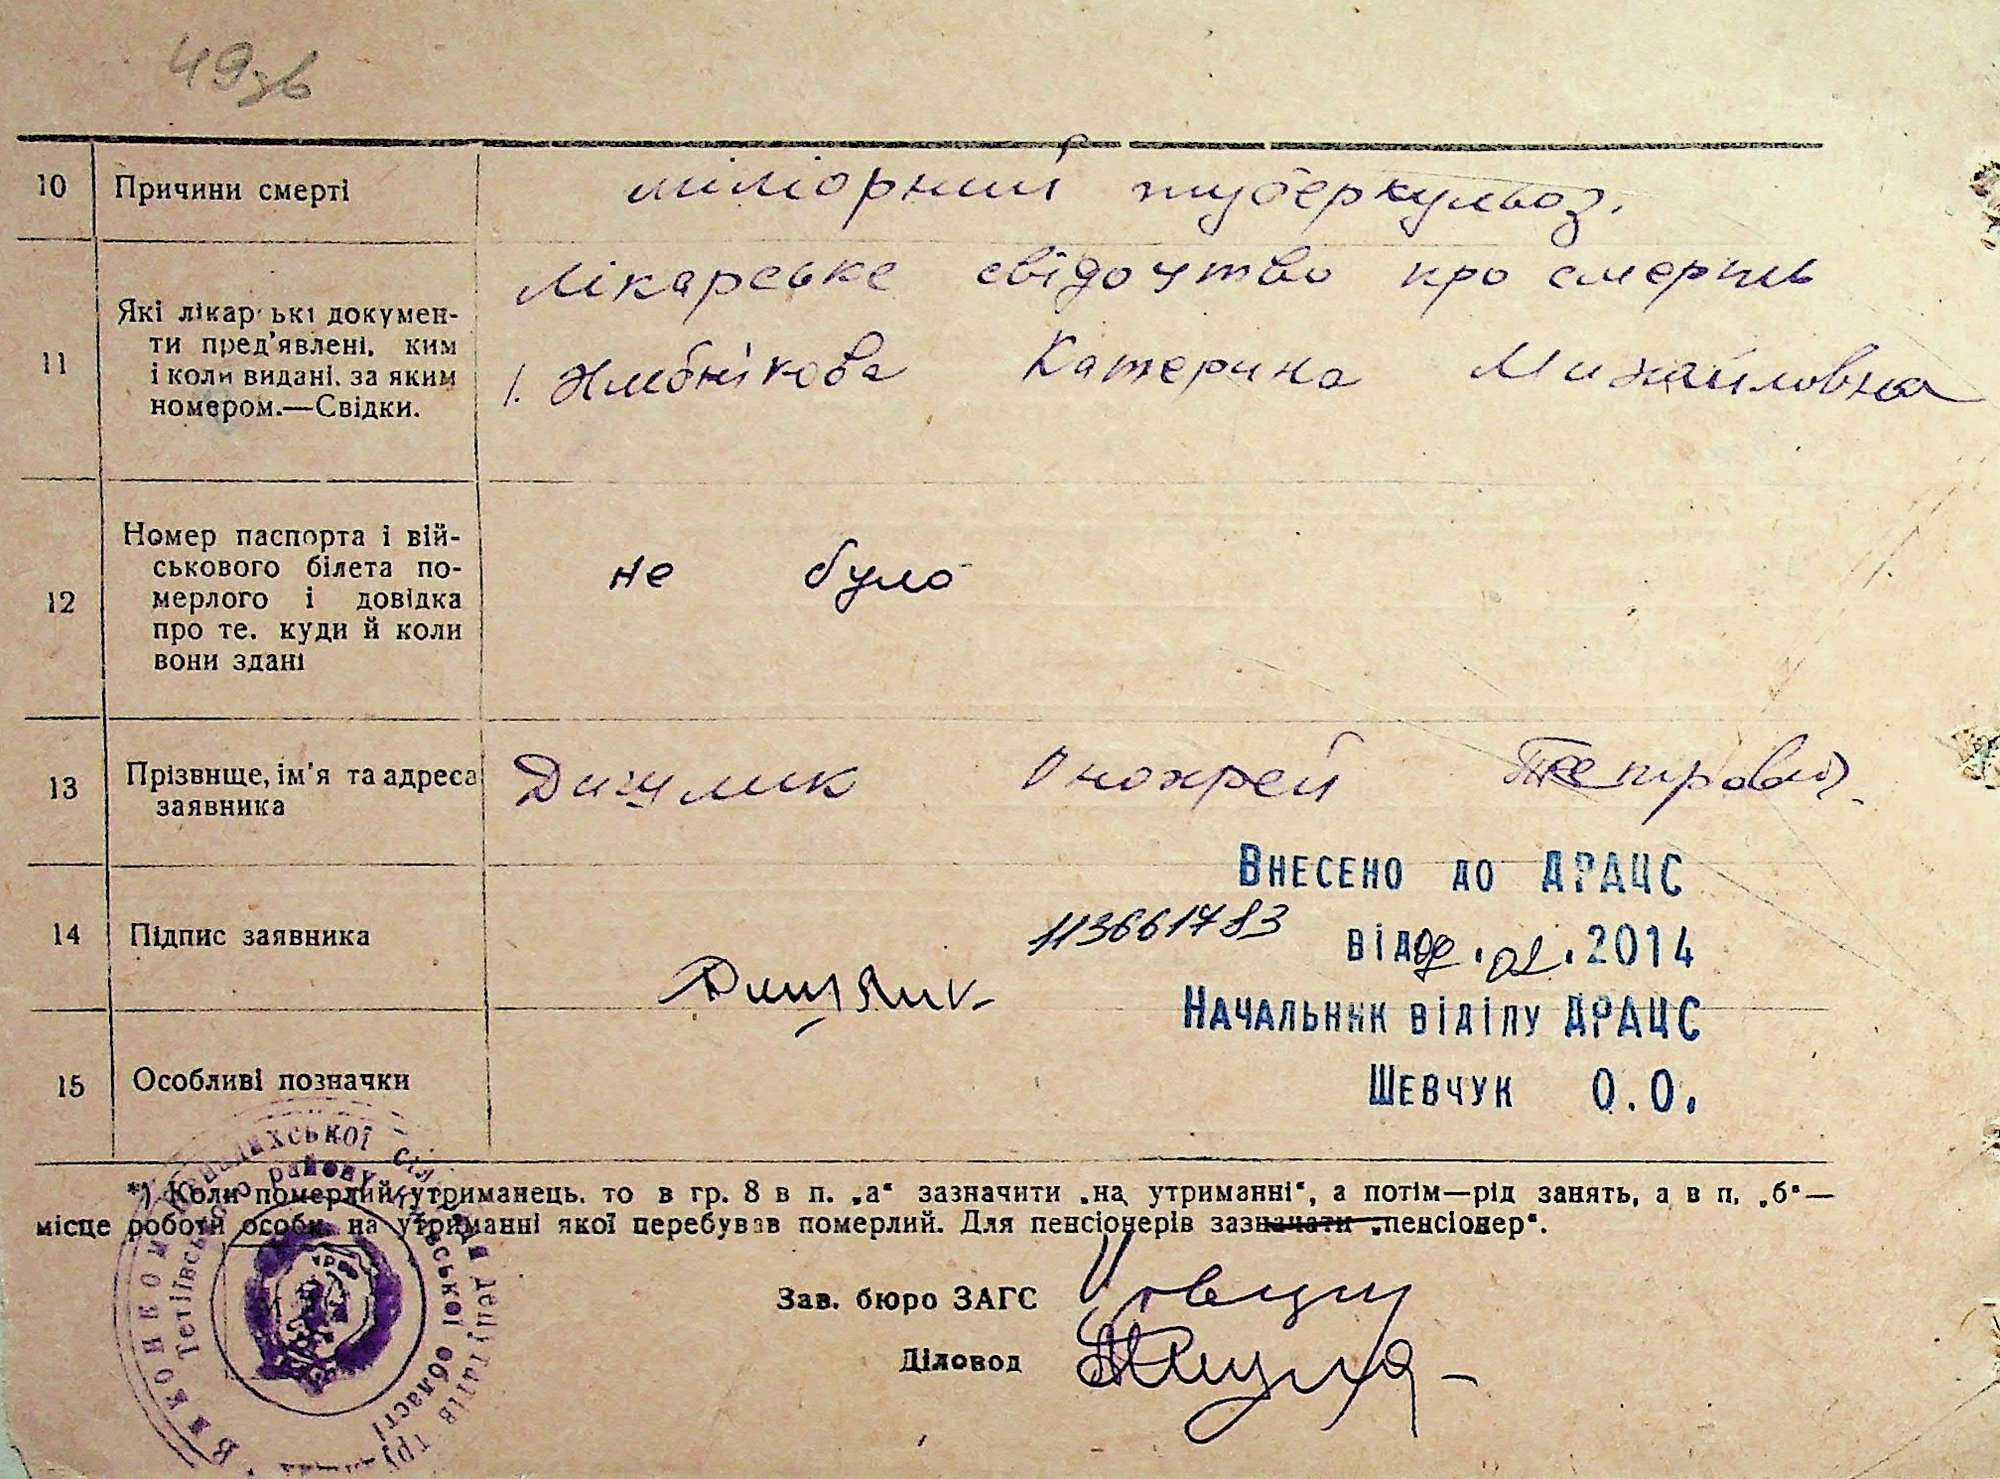 49зв
10 Причини смерті міліорний туберкульоз.
11 Які лікарські докумен-
ти пред'явлені, ким
і коли видані, за яким
номером.—Свідки.
Лікарське свідоцтво про смерть
1. Хлєбнікова Катерина Михайловна
12 Номер паспорта і вій-
ськового білета по-
мерлого і довідка
про те, куди й коли
вони здані
не було
13 Прізвище, ім'я та адреса
заявника
Дишлик
Внесено до ДРАЦС
113661783 від .02.2014
14 Підпис заявника
Начальник відділу ДРАЦС
15 Особливі позначки
Шевчук О.О.
*) Коли померлий утриманець, то в гр. 8 в п. „а“ зазначити „на утриманні“, а потім—рід занять, а в п. „б“—
місце роботи особи, на утриманні якої перебував померлий. Для пенсіонерів зазначати „пенсіонер“.
Зав. бюро ЗАГС
Діловод
Виконком сільської ради депутатів
Тетіївського району Київської області